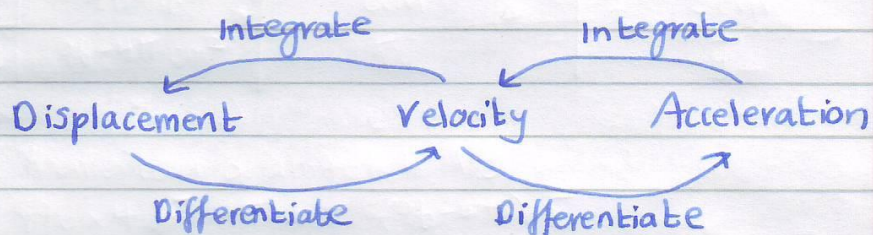 Integrate Integrate
Displacement Velocity Acceleration
Differentiate Differentiate